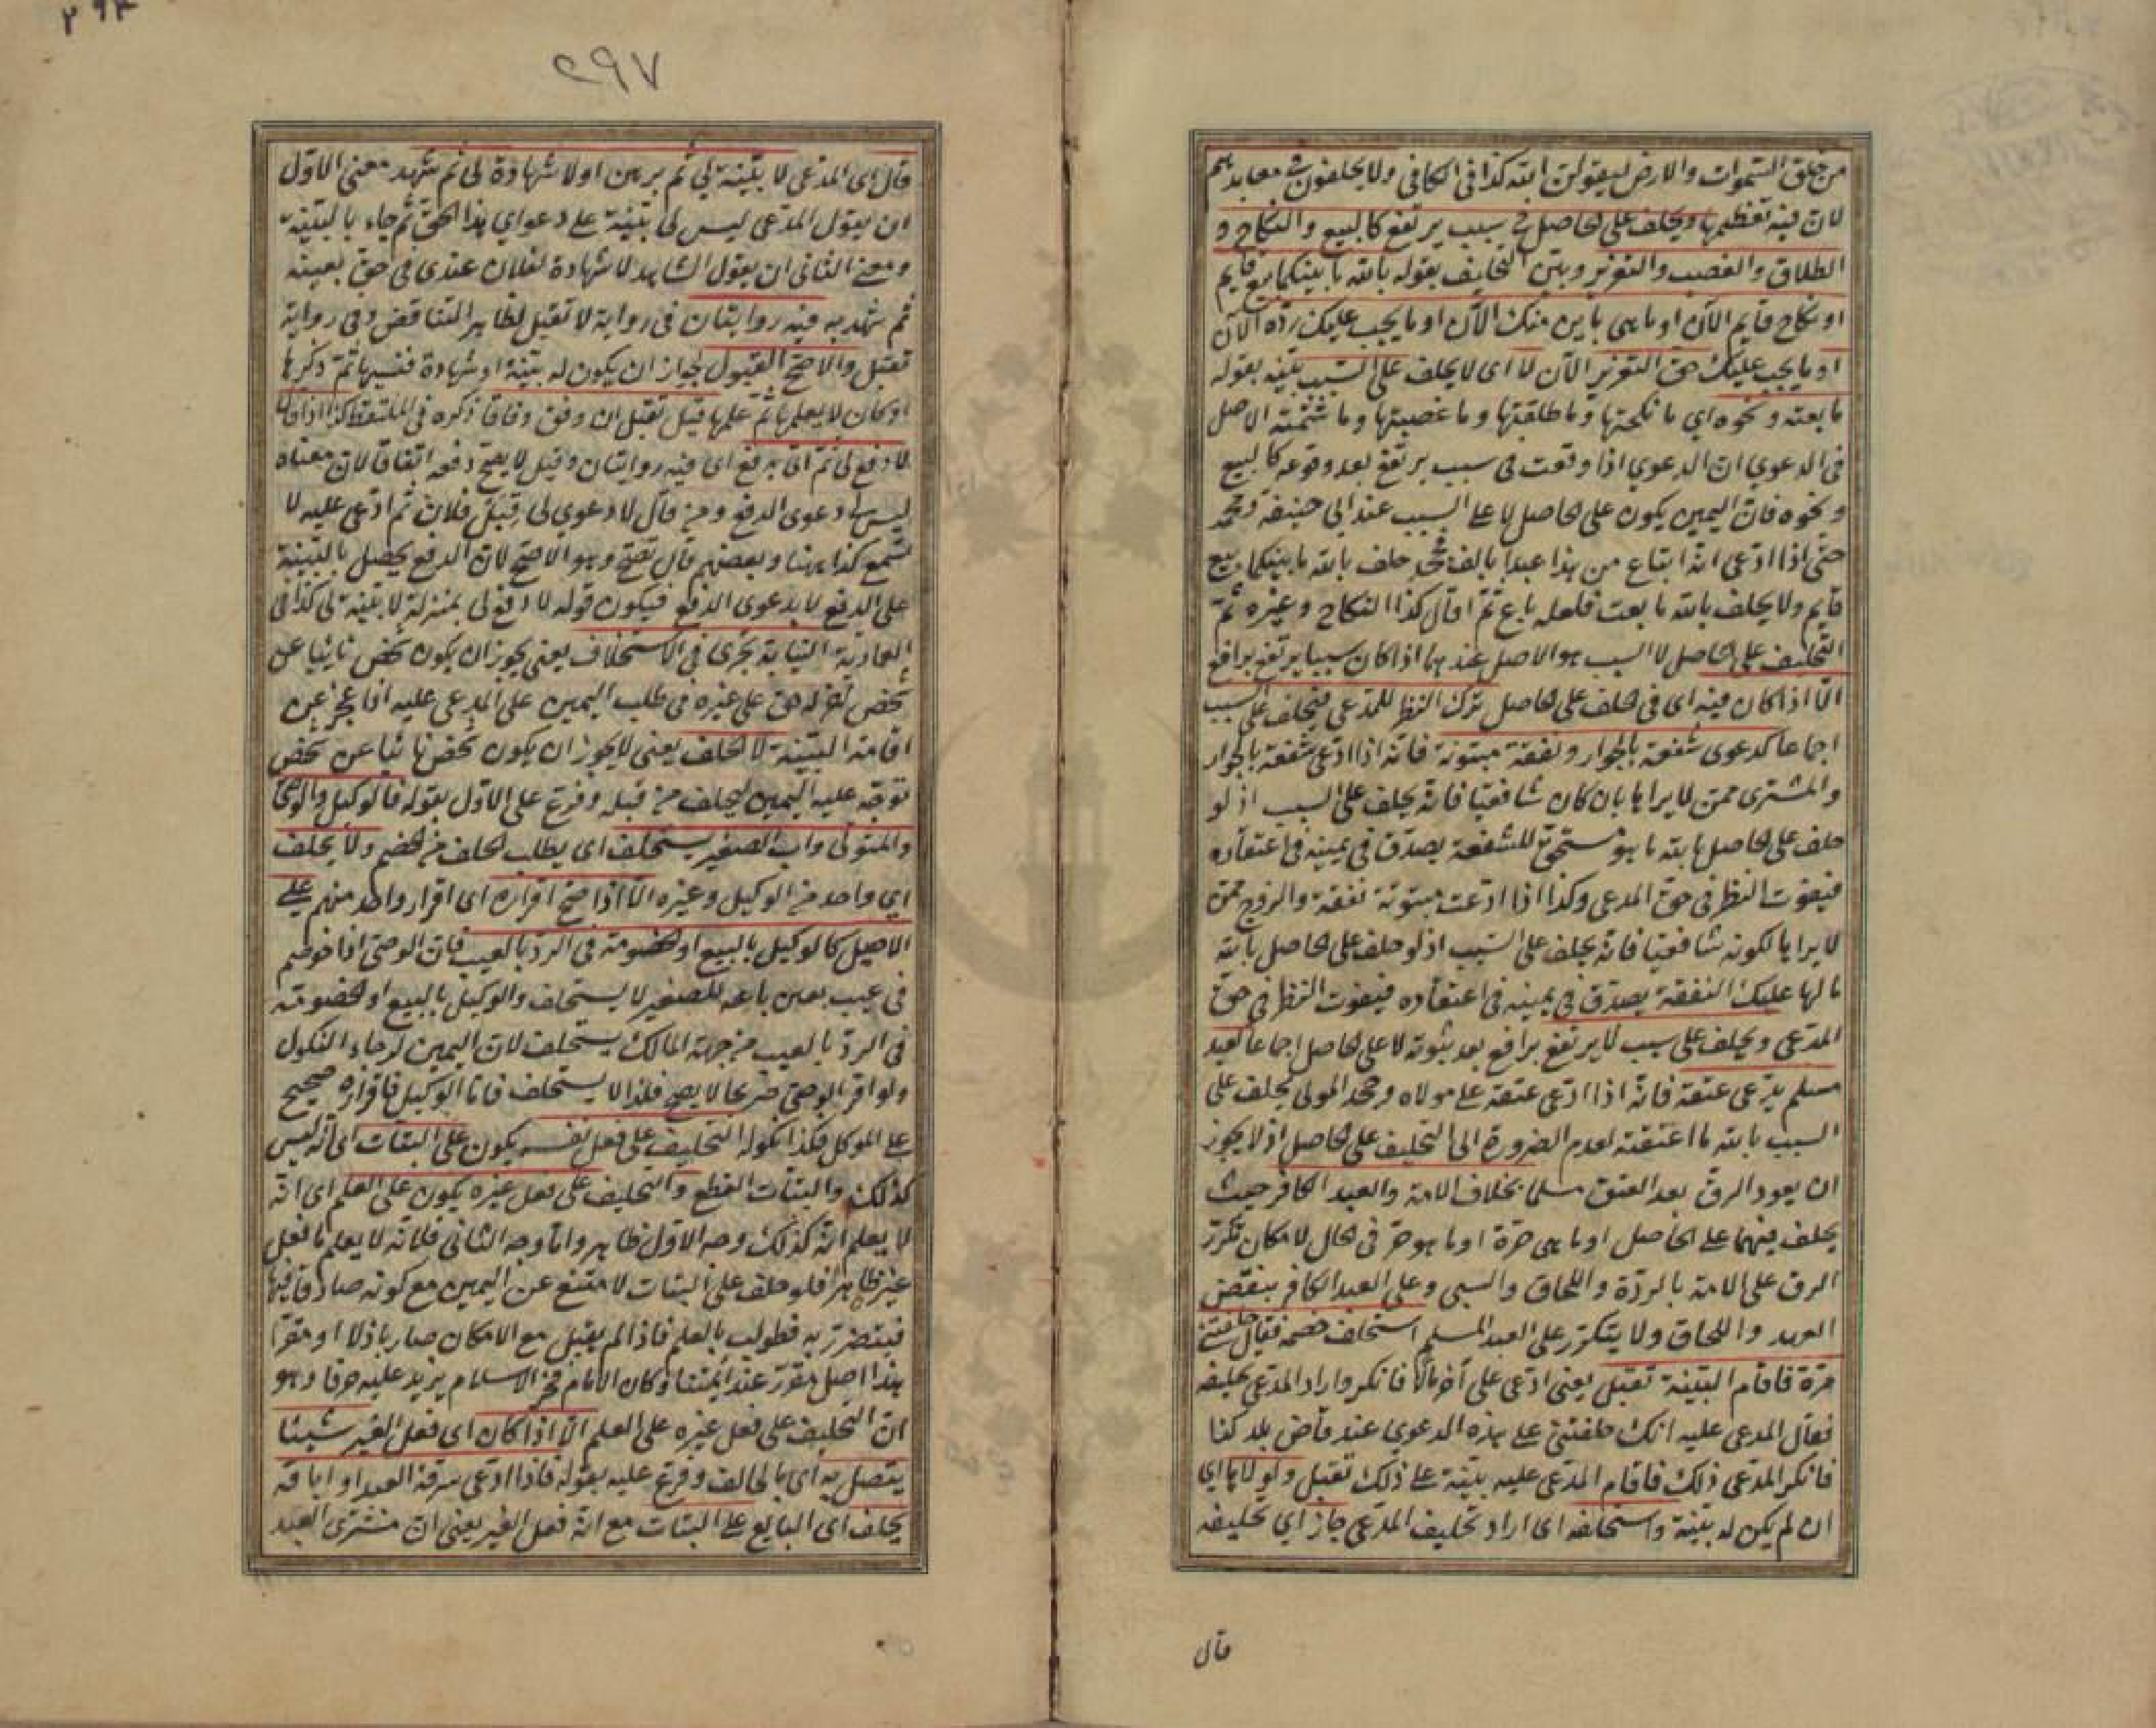 من خلق السموات والارض ليقولن الله كذا فى الكافى ولا يحلفون فى معابدهم
لان فيه تعظيمها ويحلف على الحاصل فى سبب يرتفع كالبيع والنكاح و
الطلاق والغصب والتعزير وبين التحليف بقوله بالله ما بينكما بيع قايم
او نكاح قايم الآن او ما هى باين منك الآن او ما يجب عليك رده الآن
او ما يجب عليك حق التعزير الآن لا اى لا يحلف على السبب بينه بقوله
ما بعته ونحوه اي ما نكحتها وما طلقتها وما غصبتها وما شتمته الاصل
فى الدعوي ان الدعوي اذا وقعت فى سبب يرتفع بعد وقوعه كالبيع
ونحوه فان اليمين يكون على الحاصل لا على السبب عند ابى حنيفة ومحمد
حتى اذا ادعى انه ابتاع من هذا عبدا بالف فجحد حلف بالله ما بينكما بيع
قايم ولا يحلف بالله ما بعت فلعله باع ثم اقال كذا النكاح وغيره ثم
التحليف على الحاصل لا السبب هو الاصل عندهما اذا كان سببا يرتفع برافع
الا اذا كان فيه اى فى الحلف على الحاصل ترك النظر للمدعى فيحلف على السبب
اجماعا كدعوى شفعة بالجوار ونفقة مبتوتة فانه اذا ادعى شفعة بالجوار
والمشترى ممن لا يراها بان كان شافعيا فانه يحلف على السبب اذ لو
حلف على الحاصل بالله ما هو مستحق للشفعة يصدق فى يمينه فى اعتقاده
فيفوت النظر فى حق المدعى وكذا اذا ادعت مبتوتة نفقة والزوج ممن
لا يراها لكونه شافعيا فانه يحلف على السبب اذ لو حلف على الحاصل بالله
ما لها عليك النفقة يصدق فى يمينه فى اعتقاده فيفوت النظر فى حق
المدعى ويحلف على سبب لا يرتفع برافع بعد ثبوته لا على الحاصل اجماعا كعبد
مسلم يدعى عتقه فانه اذا ادعى عتقه على مولاه وجحد المولى يحلف على
السبب بالله ما اعتقته لعدم الضرورة الى التحليف على الحاصل اذ لا يجوز
ان يعود الرق بعد العتق مسلما بخلاف الامة والعبد الكافر حيث
يحلف فيهما على الحاصل او ما هى حرة او ما هو حر فى الحال لامكان تكرر
الرق على الامة بالردة واللحاق والسبى وعلى العبد الكافر بنقض
العهد واللحاق ولا يتكرر على العبد المسلم استحلف خصمه فقال حلفتنى
مرة فاقام البينة تقبل يعنى ادعى على آخر مالا فانكر واراد المدعى تحليفه
فقال المدعى عليه انك حلفتنى على هذه الدعوي عند قاض بلد كذا
فانكر المدعى ذلك فاقام المدعى عليه بينة على ذلك تقبل ولو لا ها اي
ان لم يكن له بينة واستحلفه اى اراد تحليف المدعى جاز اي تحليفه
قال
٢٩٧
قال اى المدعى لا بينة لي ثم برهن او لا شهادة لى ثم شهد معنى الاول
ان يقول المدعى ليس لى بينة على دعواي هذا الحق ثم جاء بالبينة
ومعنى الثانى ان يقول الشاهد لا شهادة لفلان عندى فى حق بعينه
ثم شهد به فيه روايتان فى رواية لا تقبل لظاهر التناقض وفى رواية
تقبل والاصح القبول لجواز ان يكون له بينة او شهادة فنسيها ثم ذكرها
او كان لا يعلمها ثم علمها قيل تقبل ان وفق وفاقا ذكره فى الملتقط كذا اذا قال
لا دفع لى ثم اتى بدفع اى فيه روايتان وقيل لا يصح دفعه اتفاقا لان معناه
ليس لى دعوى الدفع ومن قال لا دعوي لى قبل فلان ثم ادعى عليه لا
تسمع كذا ههنا وبعضهم قال تصح وهو الاصح لان الدفع يحصل بالبينة
على الدفع لا بدعوى الدفع فيكون قوله لا دفع لى بمنزلة لا بينة لى كذا فى
العمادية النيابة تجرى فى الاستحلاف يعنى يجوز ان يكون شخص نايبا عن
شخص له حق على غيره فى طلب اليمين على المدعى عليه اذا عجز عن
اقامة البينة لا الحلف يعنى لا يجوز ان يكون شخص نايبا عن شخص
توجه عليه اليمين ليحلف من قبله وفرع على الاول بقوله فالوكيل والوصى
والمتولى واب الصغير يستحلف اى يطلب الحلف من الخصم ولا يحلف
اي واحد من الوكيل وغيره الا اذا صح اقراره اى اقرار واحد منهم على
الاصيل كالوكيل بالبيع او الخصومة فى الرد بالعيب فان الوصى اذا خوصم
فى عيب بعين باعه للصغير لا يستحلف والوكيل بالبيع او الخصومة
فى الرد بالعيب من جهة المالك يستحلف لان اليمين لرجاء النكول
ولو اقر الوصى صريحا لا يصح فلذا لا يستحلف فاما الوكيل فاقراره صحيح
على الموكل فكذا نكوله التحليف على فعل نفسه يكون على البتات اى انه ليس
كذلك والبتات القطع والتحليف على فعل غيره يكون على العلم اى انه
لا يعلم انه كذلك وجه الاول ظاهر واما وجه الثانى فلانه لا يعلم ما فعل
غيره ظاهرا فلو حلف على البتات لامتنع عن اليمين مع كونه صادقا فيها
فيتضرر به فطولب بالعلم فاذا لم يقبل مع الامكان صار باذلا او مقرا
هذا اصل مقرر عند ائمتنا وكان الامام فخر الاسلام يزيد عليه حرفا وهو
ان التحليف على فعل غيره على العلم الا اذا كان اى فعل الغير شيئا
يتصل به اى بالحالف وفرع عليه بقوله فاذا ادعى سرقة العبد او اباقه
يحلف اى البايع على البتات مع انه فعل الغير يعنى ان مشترى العبد